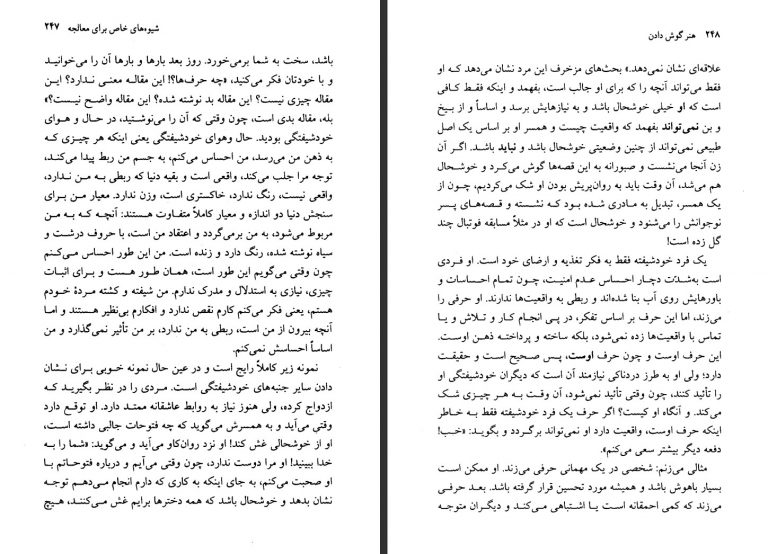 شیوه‌های خاص برای معالجه ۲۴۷
باشد، سخت به شما برمی‌خورد. روز بعد بارها و بارها آن را می‌خوانید
و با خودتان فکر می‌کنید، «چه حرف‌ها؟! این مقاله معنی ندارد؟ این
مقاله چیزی نیست؟ این مقاله بد نوشته شده؟ این مقاله واضح نیست؟»
بله، مقاله بدی است، چون وقتی که آن را می‌نوشتید، در حال و هوای
خودشیفتگی بودید. حال وهوای خودشیفتگی یعنی اینکه هر چیزی که
به ذهن من می‌رسد، من احساس می‌کنم، به جسم من ربط پیدا می‌کند،
توجه مرا جلب می‌کند، واقعی است و بقیه دنیا که ربطی به من ندارد،
واقعی نیست، رنگ ندارد، خاکستری است، وزن ندارد. معیار من برای
سنجش دنیا دو اندازه و معیار کاملاً متفاوت هستند: آنچه که به من
مربوط می‌شود، به من برمی‌گردد و اعتقاد من است، با حروف درشت و
سیاه نوشته شده، رنگ دارد و زنده است. من این طور احساس می‌کنم
چون وقتی می‌گویم این طور است، همان طور هست و برای اثبات
چیزی، نیازی به استدلال و مدرک ندارم. من شیفته و کشته مردهٔ خودم
هستم، یعنی فکر می‌کنم کارم نقص ندارد و افکارم بی‌نظیر هستند و اما
آنچه بیرون از من است، ربطی به من ندارد، بر من تأثیر نمی‌گذارد و من
اساساً احساسش نمی‌کنم.
نمونه زیر کاملاً رایج است و در عین حال نمونه خوبی برای نشان
دادن سایر جنبه‌های خودشیفتگی است. مردی را در نظر بگیرید که
ازدواج کرده، ولی هنوز نیاز به روابط عاشقانه ممتد دارد. او توقع دارد
وقتی می‌آید و به همسرش می‌گوید که چه فتوحات جالبی داشته است،
او از خوشحالی غش کند! او نزد روان‌کاو می‌آید و می‌گوید: «شما را به
خدا ببینید! او مرا دوست ندارد، چون وقتی می‌آیم و درباره فتوحاتم با
او صحبت می‌کنم، به جای اینکه به کاری که دارم انجام می‌دهم توجه
نشان بدهد و خوشحال باشد که همه دخترها برایم غش می‌کنند، هیچ
۲۴۸ هنر گوش دادن
علاقه‌ای نشان نمی‌دهد.» بحث‌های مزخرف این مرد نشان می‌دهد که او
فقط می‌تواند آنچه را که برای او جالب است، بفهمد و اینکه فقط کافی
است که او خیلی خوشحال باشد و به نیازهایش برسد و اساساً و از بیخ
و بن نمی‌تواند بفهمد که واقعیت چیست و همسر او بر اساس یک اصل
طبیعی نمی‌تواند از چنین وضعیتی خوشحال باشد و نباید باشد. اگر آن
زن آنجا می‌نشست و صبورانه به این قصه‌ها گوش می‌کرد و خوشحال
هم می‌شد، آن وقت باید به روان‌پریش بودن او شک می‌کردیم، چون از
یک همسر، تبدیل به مادری شده بود که نشسته و قصه‌های پسر
نوجوانش را می‌شنود و خوشحال است که او در مثلاً مسابقه فوتبال چند
گل زده است!
یک فرد خودشیفته فقط به فکر تغذیه و ارضای خود است. او فردی
است به‌شدّت دچار احساس عدم امنیت، چون تمام احساسات و
باورهایش روی آب بنا شده‌اند و ربطی به واقعیت‌ها ندارند. او حرفی را
می‌زند، اما این حرف بر اساس تفکر، در پی انجام کار و تلاش و یا
تماس با واقعیت‌ها زده نمی‌شود، بلکه ساخته و پرداخته ذهن اوست.
این حرف اوست و چون حرف اوست، پس صحیح است و حقیقت
دارد؛ ولی او به طرز دردناکی نیازمند آن است که دیگران خودشیفتگی او
را تأئید کنند، چون وقتی تأئید نمی‌شود، آن وقت به هر چیزی شک
می‌کند. و آنگاه او کیست؟ اگر حرف یک فرد خودشیفته فقط به خاطر
اینکه حرف اوست، واقعیت دارد او نمی‌تواند برگردد و بگوید: «خب!
دفعه دیگر بیشتر سعی می‌کنم».
مثالی می‌زنم: شخصی در یک مهمانی حرفی می‌زند. او ممکن است
بسیار باهوش باشد و همیشه مورد تحسین قرار گرفته باشد. بعد حرفی
می‌زند که کمی احمقانه است یا اشتباهی می‌کند و دیگران متوجه